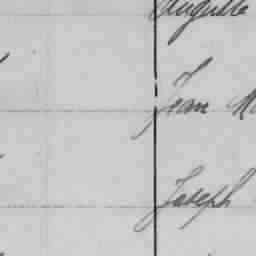 Auguste
Jean
Joseph